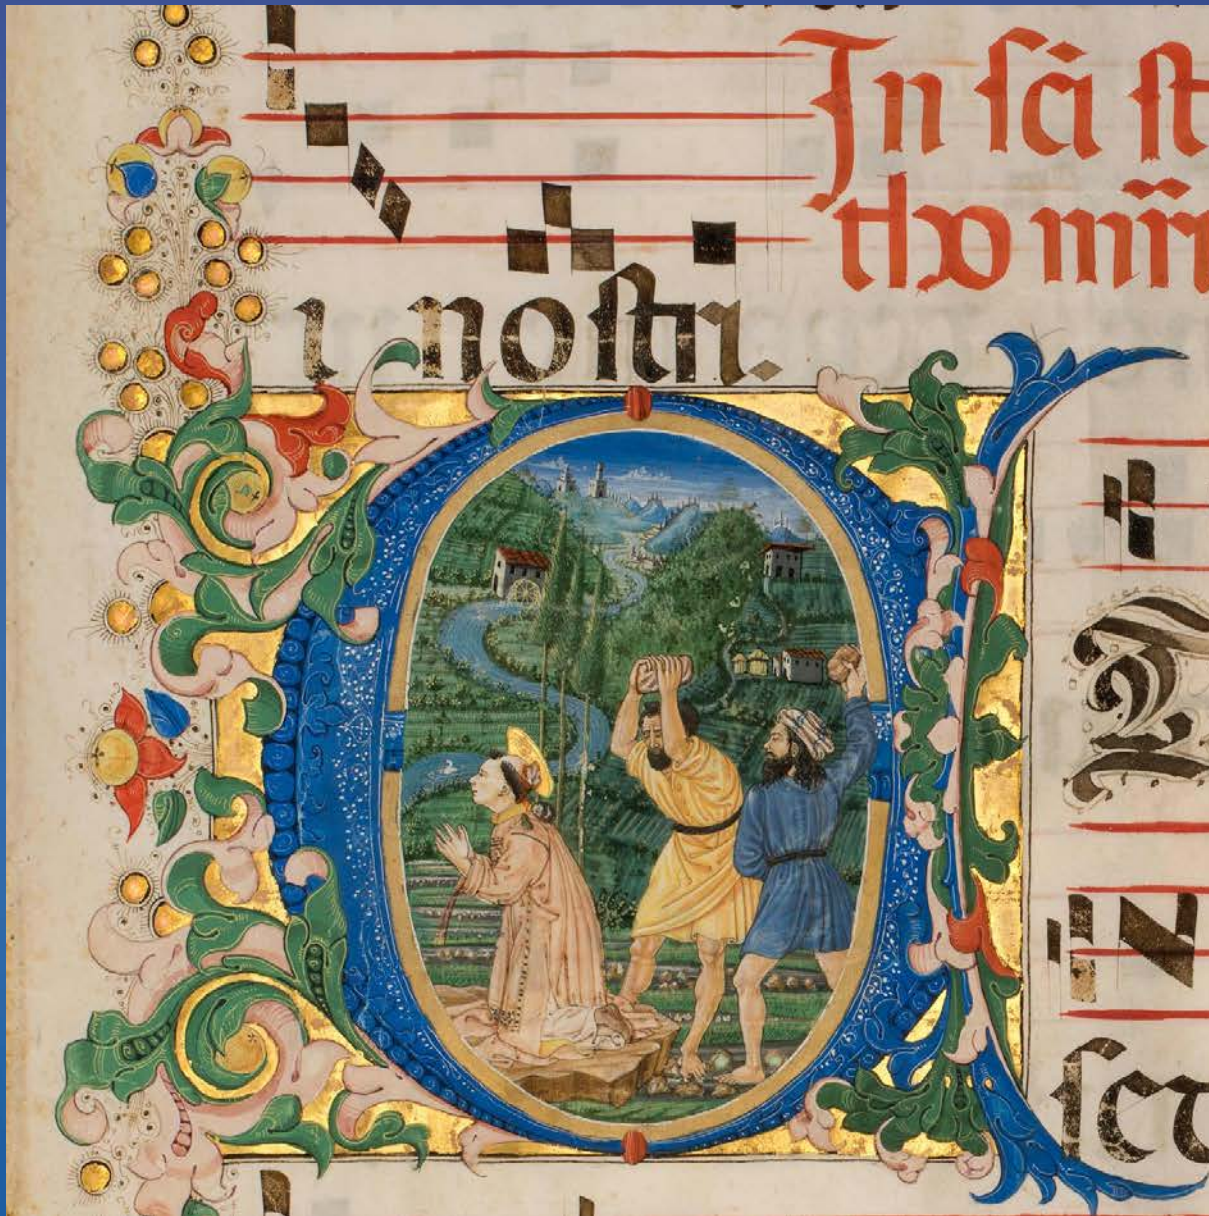 In ſc̄i ſt
tho mr̄
i noſtri.
E T
ſe